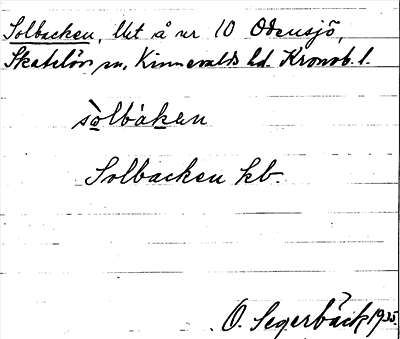 Solbacken, lht å nr 10 Odensjö,
Skatelövs sn, Kinnevalds hd. Kronob. l.
sòlbàken
Solbacken kb.
O. Segerbäck 1935.